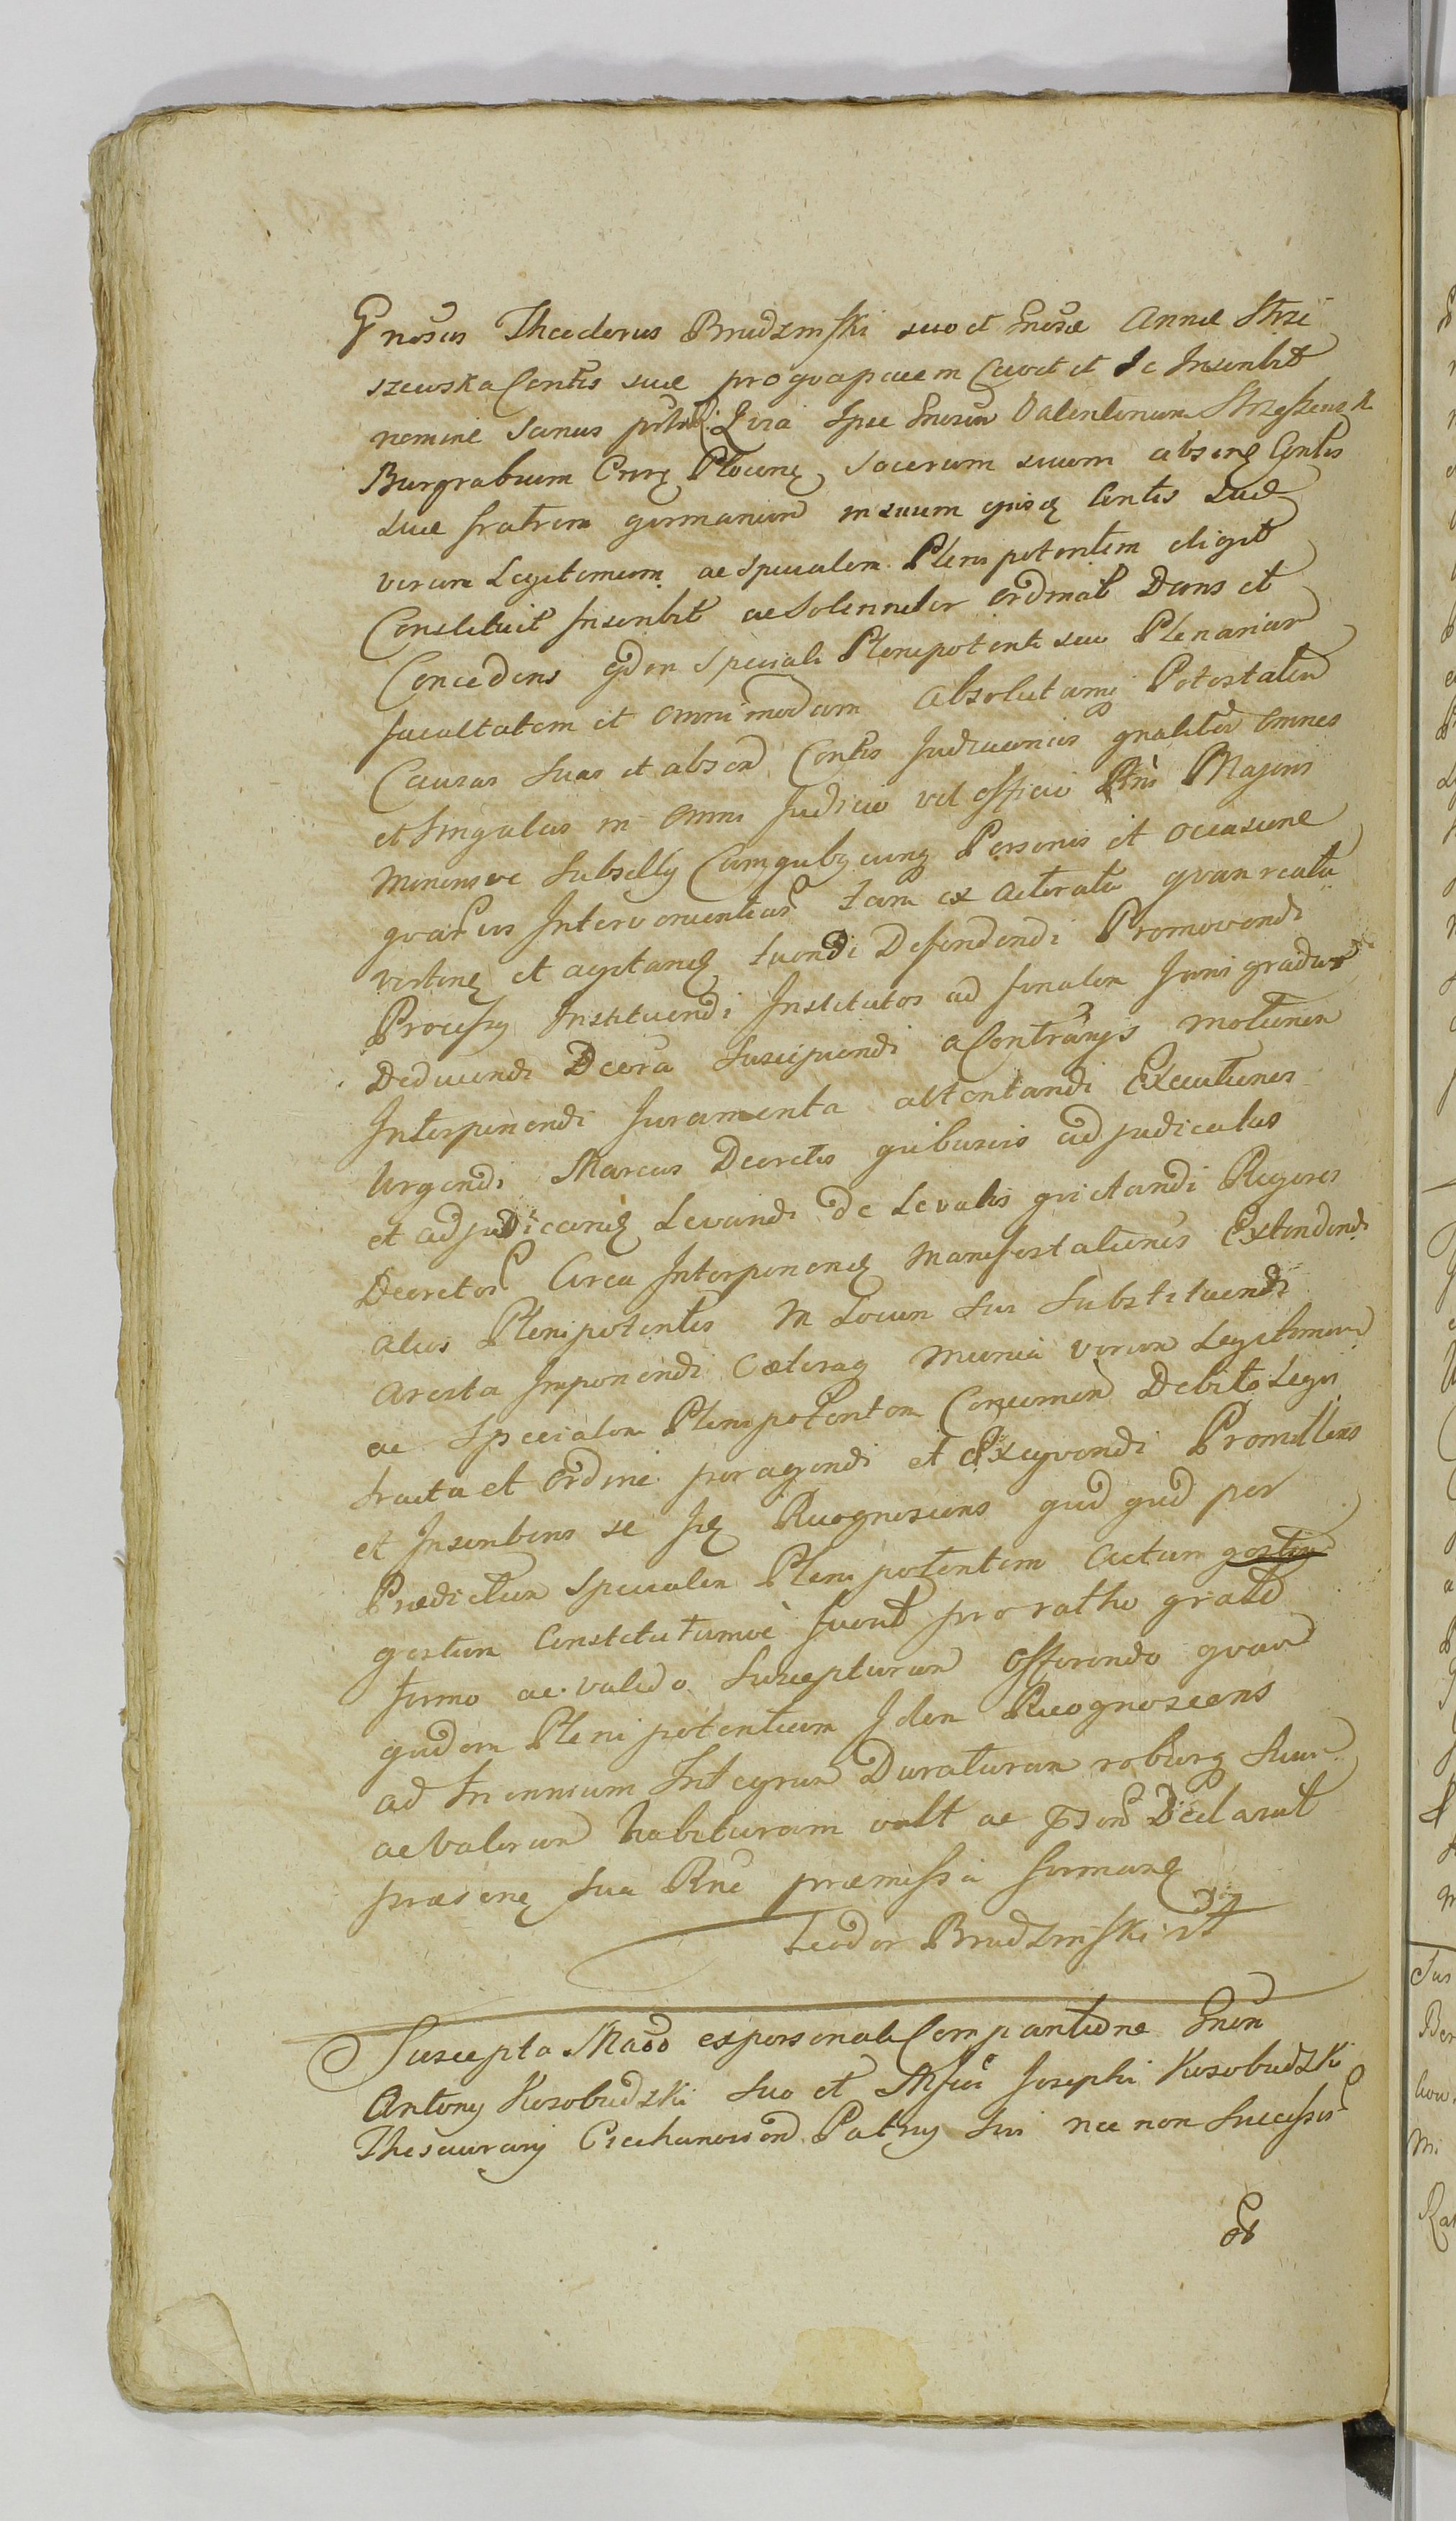 Gnosus Theodorus Brudzinski suo et Gnosæ Annæ Strze
szewska Contis suæ pro qva pacem Cavet et Se Inscribit
nomine Sanus Qvia Ipse Gnosum Valentinum Strzeszewsk
Burgrabium Plocen Socerum suum absen Contis
suæ fratrem germanum in suum ejusq Contis suæ
verum Legitimum ac Specialem Plenipotentem eligit
Constituit Inscribit ac Solenniter ordinat Dans et
Concedens eidem Speciali Plenipotenti suo Plenariam
facultatem et omnimodam absolutamq Potestatem
Causas Suas et absen Contis Judiciarias gnaliter omnes
et Singulas in omni Judicio vel officio Rni Majoris
Minorisve Subselly Cum qvibuscunq Personis et occasione
qvarumvis Intervenientiar tam ex actoratu qvam reatu
verten et agitan tuendi Defendendi Promovendi
Process Instituendi Institutos ad finalem Juris gradum
Deducendi Decreta Suscipiendi a Contrarys motionem
Interponendi Juramenta attentandi Executiones
Urgendi Marcas Decretis qvibusvis adjudicatas
et adjudicand Levandi de Levatis qvietandi Rigores
Decretor Circa Interponend Manifestationes Extendendi
alios Plenipotentes in Locum Sui Substituendi
aresta Imponendi Cæteraq Munia verum Legitimum
ac Specialem Plenipotentem Concernen Debito Legis
tractu et ordine peragendi et Exeqvendi Promittens
et Inscribens se Recognoscens qvod qvid per
Prædictum Specialem Plenipotentem Actum gestum
gestum Constitutumve fuerit pro ratho grato
firmo ac valido Suscepturum Offerendo qvam
qvidem Plenipotentiam Idem Recognoscens
ad triennium Integrum Duraturam roburq Suum
ac Valorem habituram vult ac Declarat
præsen Sua Rne præmissa firman
Teodor Brudzinski
Suscepta Mado ex personali Comparitione Gnosi
Antony Kosobudzki Suo et Mfici Josephi Kosobudzki
Thesaurary Ciechanovien Patruy Sui nec non Success
et